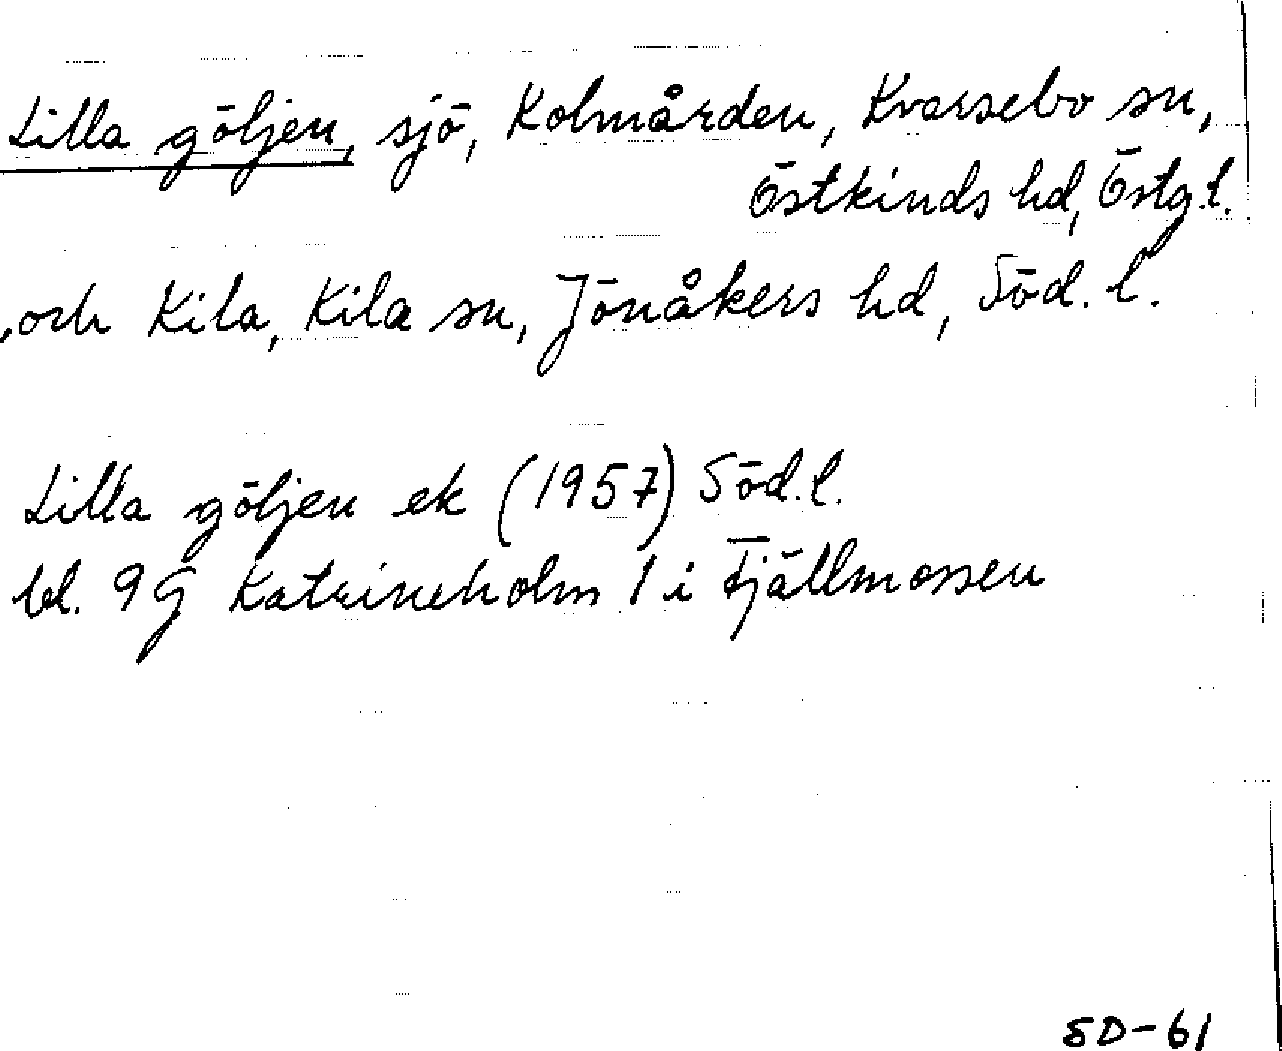 Lilla göljen, sjö, Kolmården, Kvarsebo sn,
Östkinds hd, Östg.l.
och Kila, Kila sn, Jönåkers hd, Söd. l.
Lilla göljen ek (1957) Söd.l.
bl. 9G Katrineholm 1 i Fjällmossen
SD-61